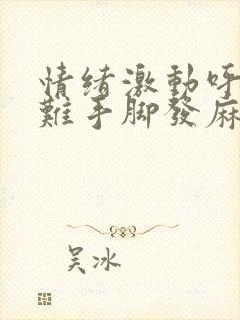 情绪激動呼
難手脚發麻
吴冰